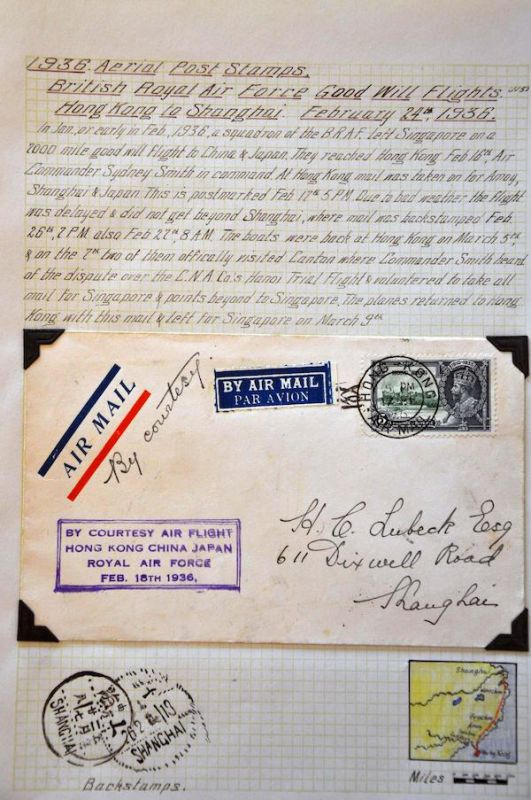 1936. Aerial Post Stamps.
British Royal Air Force Good Will Flights.
Hong Kong to Shanghai. February 24th, 1936.
In Jan, or early in Feb, 1936, a squadron of the B.R.A.F. left Singapore on a
7000 mile good will flight to China & Japan. They reached Hong Kong Feb 10th Air
Commander Sydney Smith in command. At Hong Kong mail was taken on for Amoy,
Shanghai & Japan. This is postmarked Feb. 17th, 5 P.M. Due to bad weather the flight
was delayed & did not get beyond Shanghai, where mail was backstamped Feb.
26th, 7 P.M. also Feb 27th, 8 A.M. The boats were back at Hong Kong on March 5th,
& on the 7th two of them offically visited Canton where Commander Smith heard
of the dispute over the C.N.A. Co's. Hanoi Trial Flight & voluntered to take all
mail for Singapore & points beyond to Singapore. The planes returned to Hong
Kong with this mail & left for Singapore on March 9th
AIR MAIL
By courtesy.
BY AIR MAIL
PAR AVION
HONG KONG
PM
BY COURTESY AIR FLIGHT
HONG KONG CHINA JAPAN
ROYAL AIR FORCE
FEB. 18TH 1936,
H. C. Lubeck Esq
611 Dixwell Road
Shanghai
SHANGHAI
SHANGHAI
Backstamps.
Shanghai
Miles